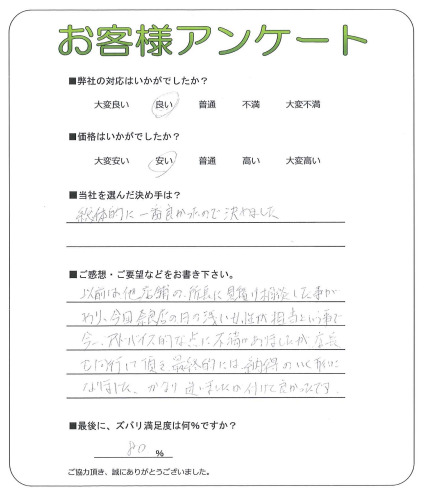 お客様アンケート
■弊社の対応はいかがでしたか？
大変良い 良い 普通 不満 大変不満
■価格はいかがでしたか？
大変安い 安い 普通 高い 大変高い
■当社を選んだ決め手は？
総体的に一番良かったので決めました
■ご感想・ご要望などをお書き下さい。
以前は他店舗の所長に見積り相談した事が
あり、今回奈良店の日の浅い女性が担当という事で
今一、アドバイス的な点に不満がありましたが店長
も同行して頂き最終的には納得のいく形に
なりました。かなり迷いましたが付けて良かったです。
■最後に、ズバリ満足度は何％ですか？
80 %
ご協力頂き、誠にありがとうございました。